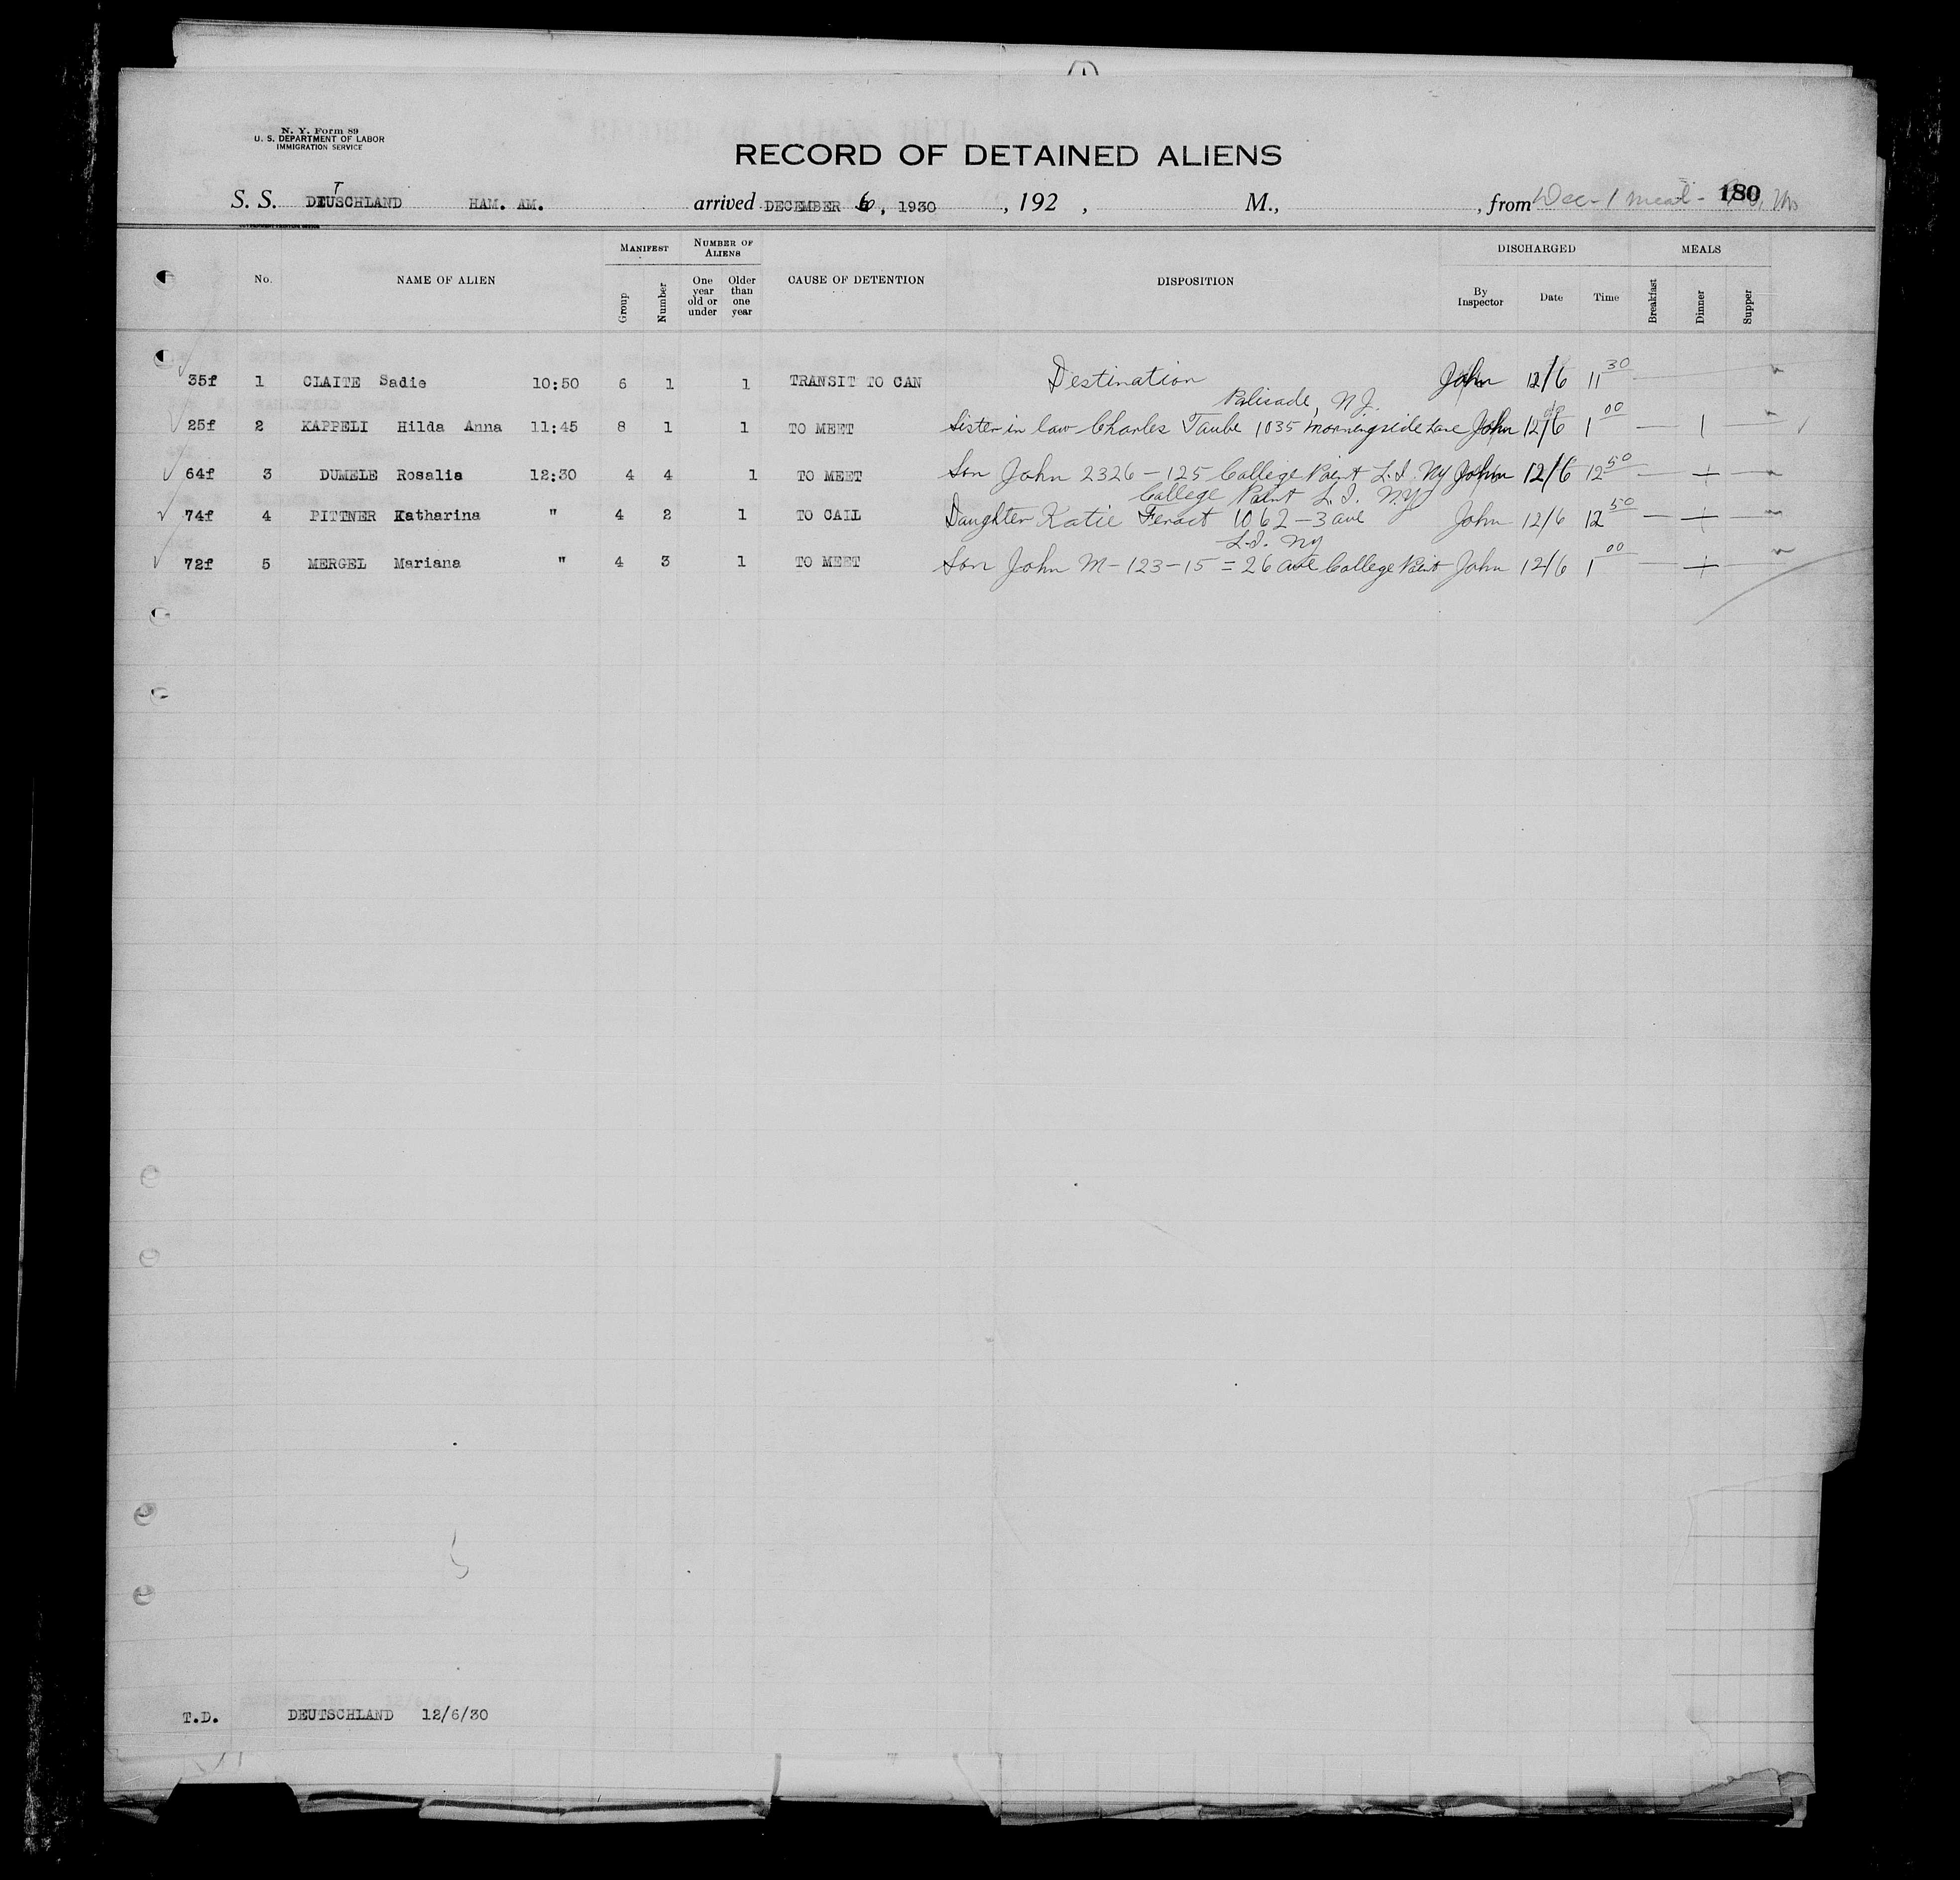 N. Y. Form 89
U. S. DEPARTMENT OF LABOR
IMMIGRATION SERVICE
RECORD OF DETAINED ALIENS
S. S. DEUTSCHLAND HAM. AM. arrived DECEMBER 6, 1930, 192 , M., , from Dec- 1 meal - 180
MANIFEST NUMBER OF ALIENS DISCHARGED MEALS
No. NAME OF ALIEN Group Number One year old or under Older than one year CAUSE OF DETENTION DISPOSITION By Inspector Date Time Breakfast Dinner Supper
35f 1 CLAITE Sadie 10:50 6 1 1 TRANSIT TO CAN Destination John 12/6 11 30
Palisade, N.J.
25f 2 KAPPELI Hilda Anna 11:45 8 1 1 TO MEET Sister in law Charles Taube 1035 Morningside Lane John 12/6 1 00 — 1 —
64f 3 DUMELE Rosalia 12:30 4 4 1 TO MEET Son John 2326 - 125 College Point L.I. NY John 12/6 12 50 — 1 —
College Point L.I. NY
74f 4 PITTNER Katharina " 4 2 1 TO CALL Daughter Katie 1062 - 3 ave John 12/6 12 50 — 1 —
L.I. NY
72f 5 MERGEL Mariana " 4 3 1 TO MEET Son John M - 123-15 = 26 ave College Point John 12/6 1 00 — 1 —
5
T.D. DEUTSCHLAND 12/6/30